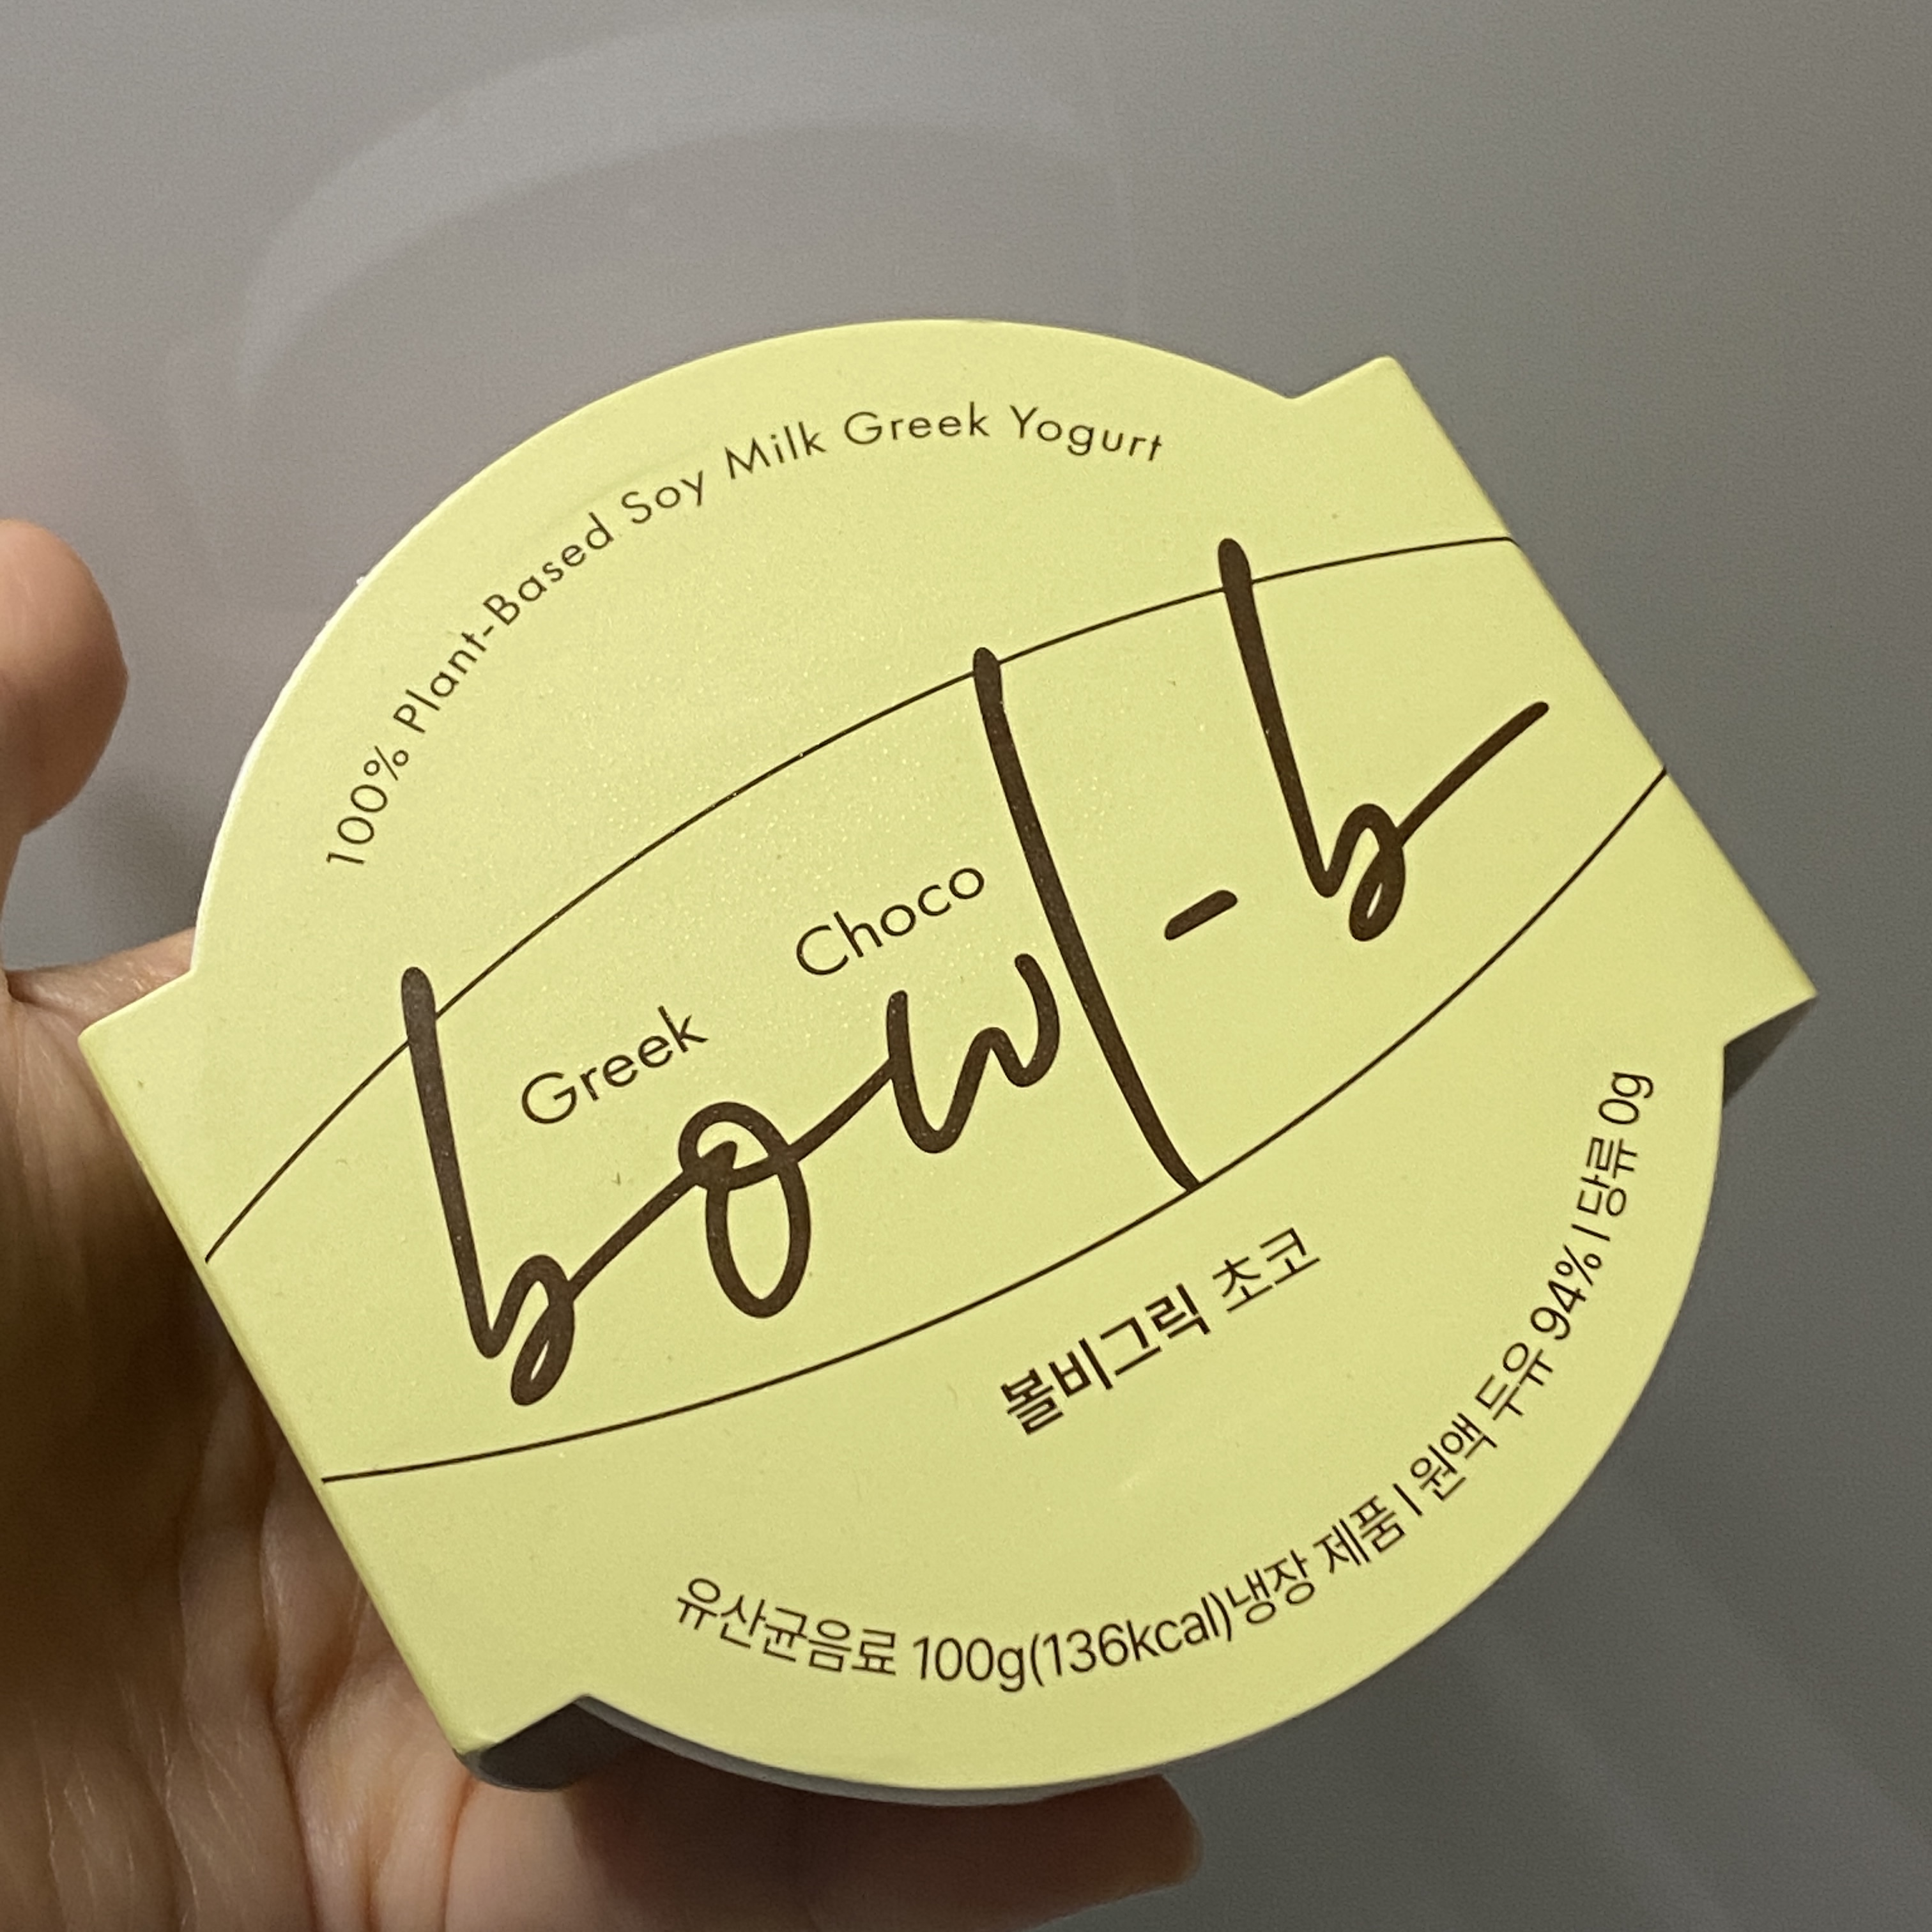 100% Plant-Based Soy Milk Greek Yogurt
Greek Choco
bowl-b
볼비그릭 초코
유산균음료 100g(136kcal)냉장 제품 | 원액 두유 94% | 당류 0g